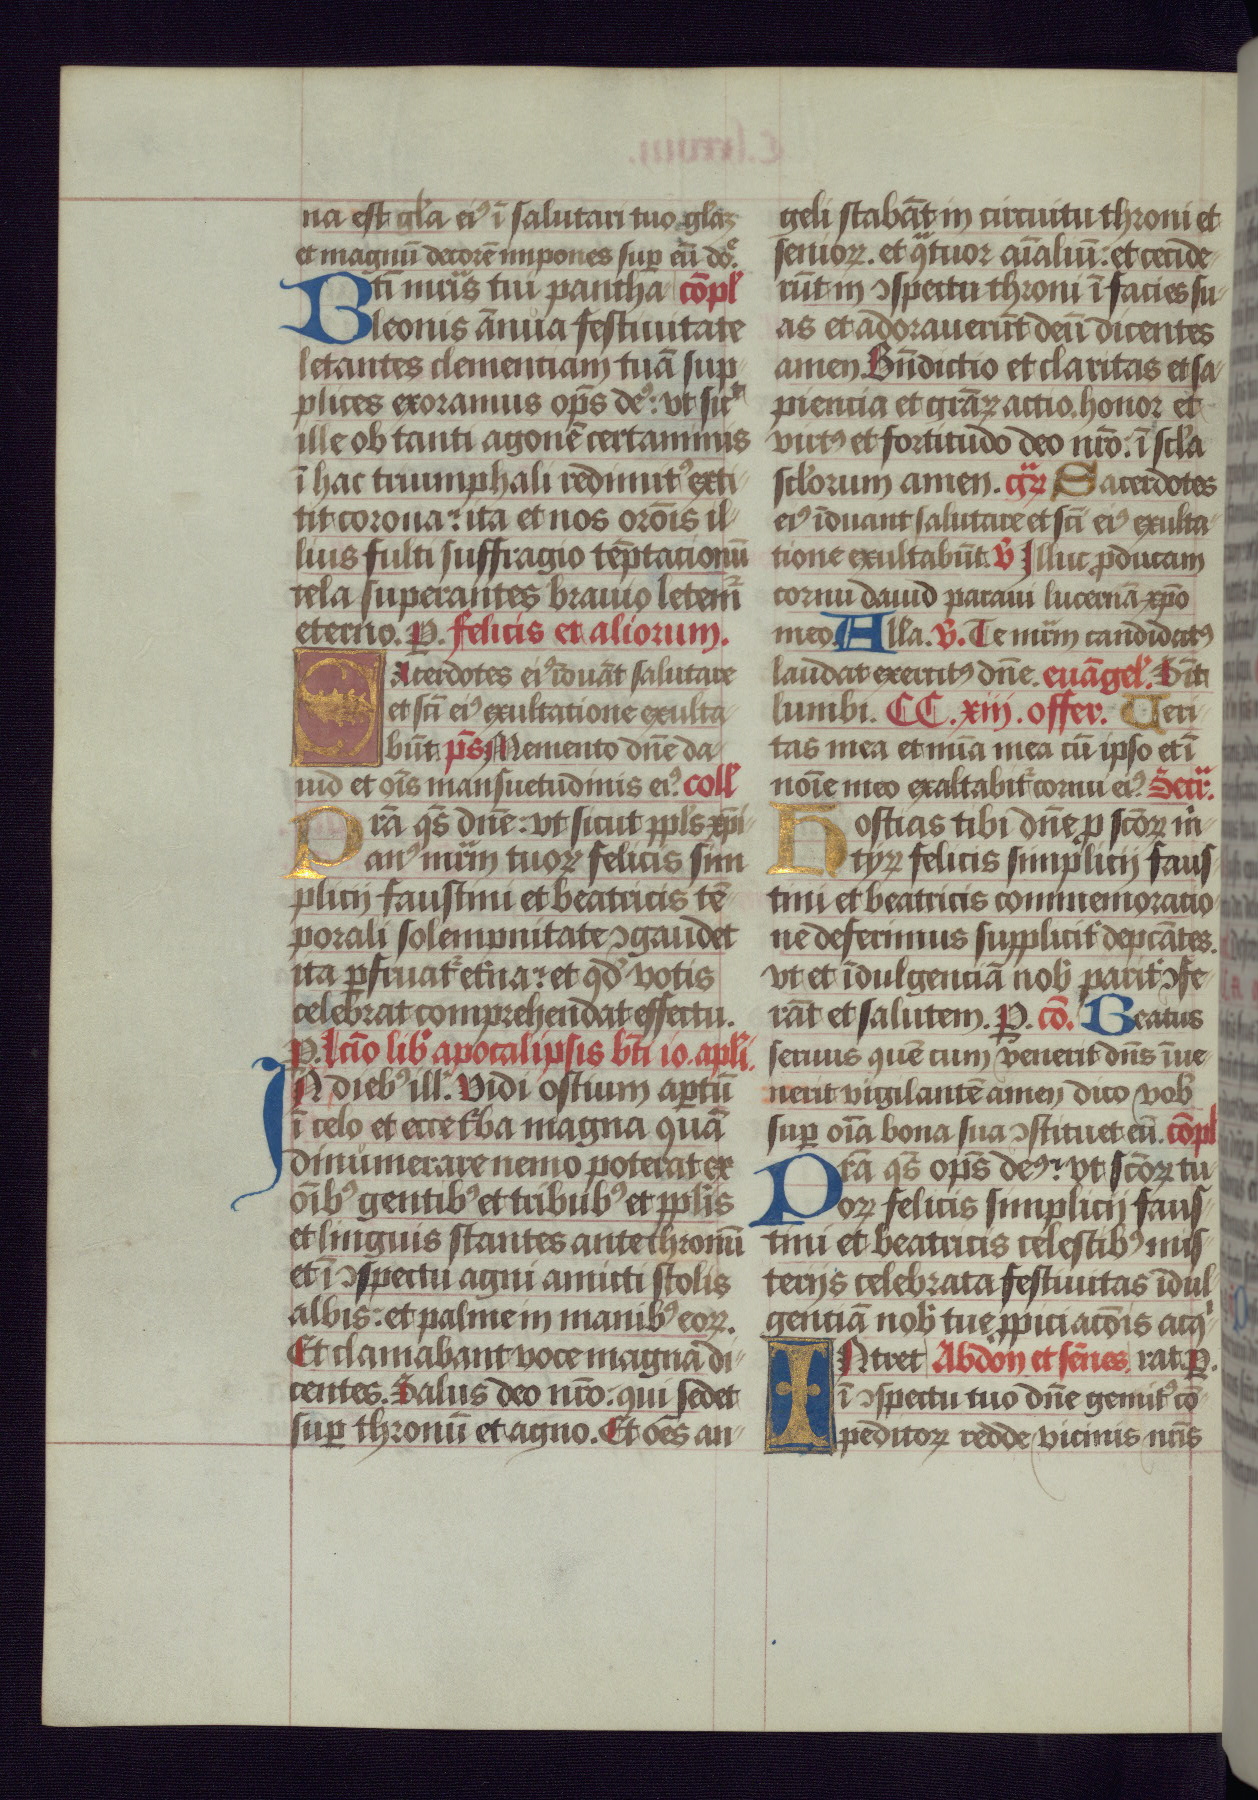 na est gl'a ei9 ī salutari tuo. gl'aꝫ
et magnū decorē impones suꝑ eū dōe.
Bti mr̄is tui pantha cōpl'
leonis ānua festiuitate
letantes clementiam tuā sup
plices exoramus op̄s de9: vt sic
ille ob tanti agonē certaminis
ī hac triumphali redimit9 exti
tit corona: ita et nos orōis il
lius fulti suffragio tēptacionū
tela superantes brauio letem̄
eterno. P. felicis et aliorum.
SAcerdotes ei9 īduāt salutare
et scī ei9 exultatione exulta
būt. p̄s Memento dn̄e da
uid et oīs mansuetudinis ei9. coll'
Prā q̄s dn̄e: vt sicut ppl's xp̄i
an9 mr̄im tuoꝝ felicis sim
plicij faustini et beatricis tē
porali solempnitate ꝯgaudet
ita ꝑfruat᷑ et̄na: et qd' votis
celebrat comprehendat effectu.
P. Lc̄io lib' apocalipsis bt̄i io. apl'i.
IN dieb9 ill'. Vidi ostium aꝑtū
ī celo et ecce t'ba magna quā
dinumerare nemo poterat ex
oīb9 gentib9 et tribub9 et ppl'is
et linguis stantes ante thronū
et ī ꝯspectu agni amicti stolis
albis: et palme in manib9 eoꝝ.
Et clamabant voce magna di
centes. Salus deo nr̄o: qui sedet
suꝑ thronū et agno. Et oēs an
geli stabāt in circuitu throni et
senioꝝ. et qͣtuor aīaliū: et cecide
rūt in ꝯspectu throni ī facies su
as et adorauerūt deū dicentes
amen. Bn̄dictio et claritas et sa
piencia et grāꝝ actio. honor et
virt9 et fortitudo deo nr̄o: ī scl'a
scl'orum amen. gr̄ Sacerdotes
ei9 īduant salutare et scī ei9 exulta
tione exultabūt. V Illuc ꝓducam
cornu dauid paraui lucernā xp̄o
meo. All'a. V. Te mr̄im candidat9
laudat exercit9 dn̄e. euāgel'. Sīt
lumbi. CC. xiij. offer. Veri
tas mea et mīa mea cū ipso et ī
noīe meo exaltabit᷑ cornu ei9. Secr̄.
Hostias tibi dn̄e ꝓ scōꝝ m̄
tyꝝ felicis simplicij faus
tini et beatricis commemoracio
ne deferimus supplicit' dep̄cātes.
vt et īdulgenciā nob' parit' ꝯfe
rāt et salutem. P. cō. Beatus
seruus quē cum venerit dn̄s īue
nerit vigilantē amen dico vob'
suꝑ oīa bona sua ꝯstituet eū. cōpl
Prā q̄s op̄s de9: vt scōꝝ tu
oꝝ felicis simplicij faus
tini et beatricis celestib9 mis
terijs celebrata festiuitas īdul
genciā nob' tue ꝓpiciacōis acqͥ
INtret Abdon et sēnes. rat. P.
ī ꝯspectu tuo dn̄e gemit9 cō
peditoꝝ redde vicinis nr̄is